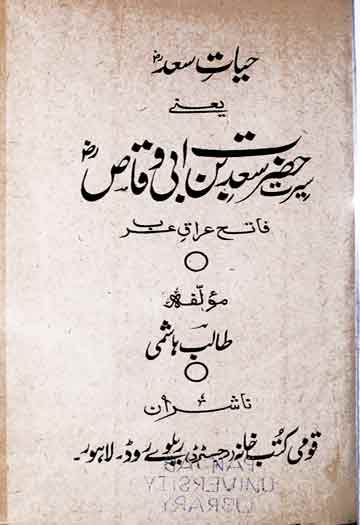 حیاتِ سعدؓ
یعنی
سیرت حضرت سعد بن ابی وقاصؓ
فاتح عراقِ عرب
مؤلّفہ
طالب ہاشمی
ناشران
قومی کتب خانہ (رجسٹرڈ) ریلوے روڈ۔ لاہور۔
PANJAB
UNIVERSITY
LIBRARY